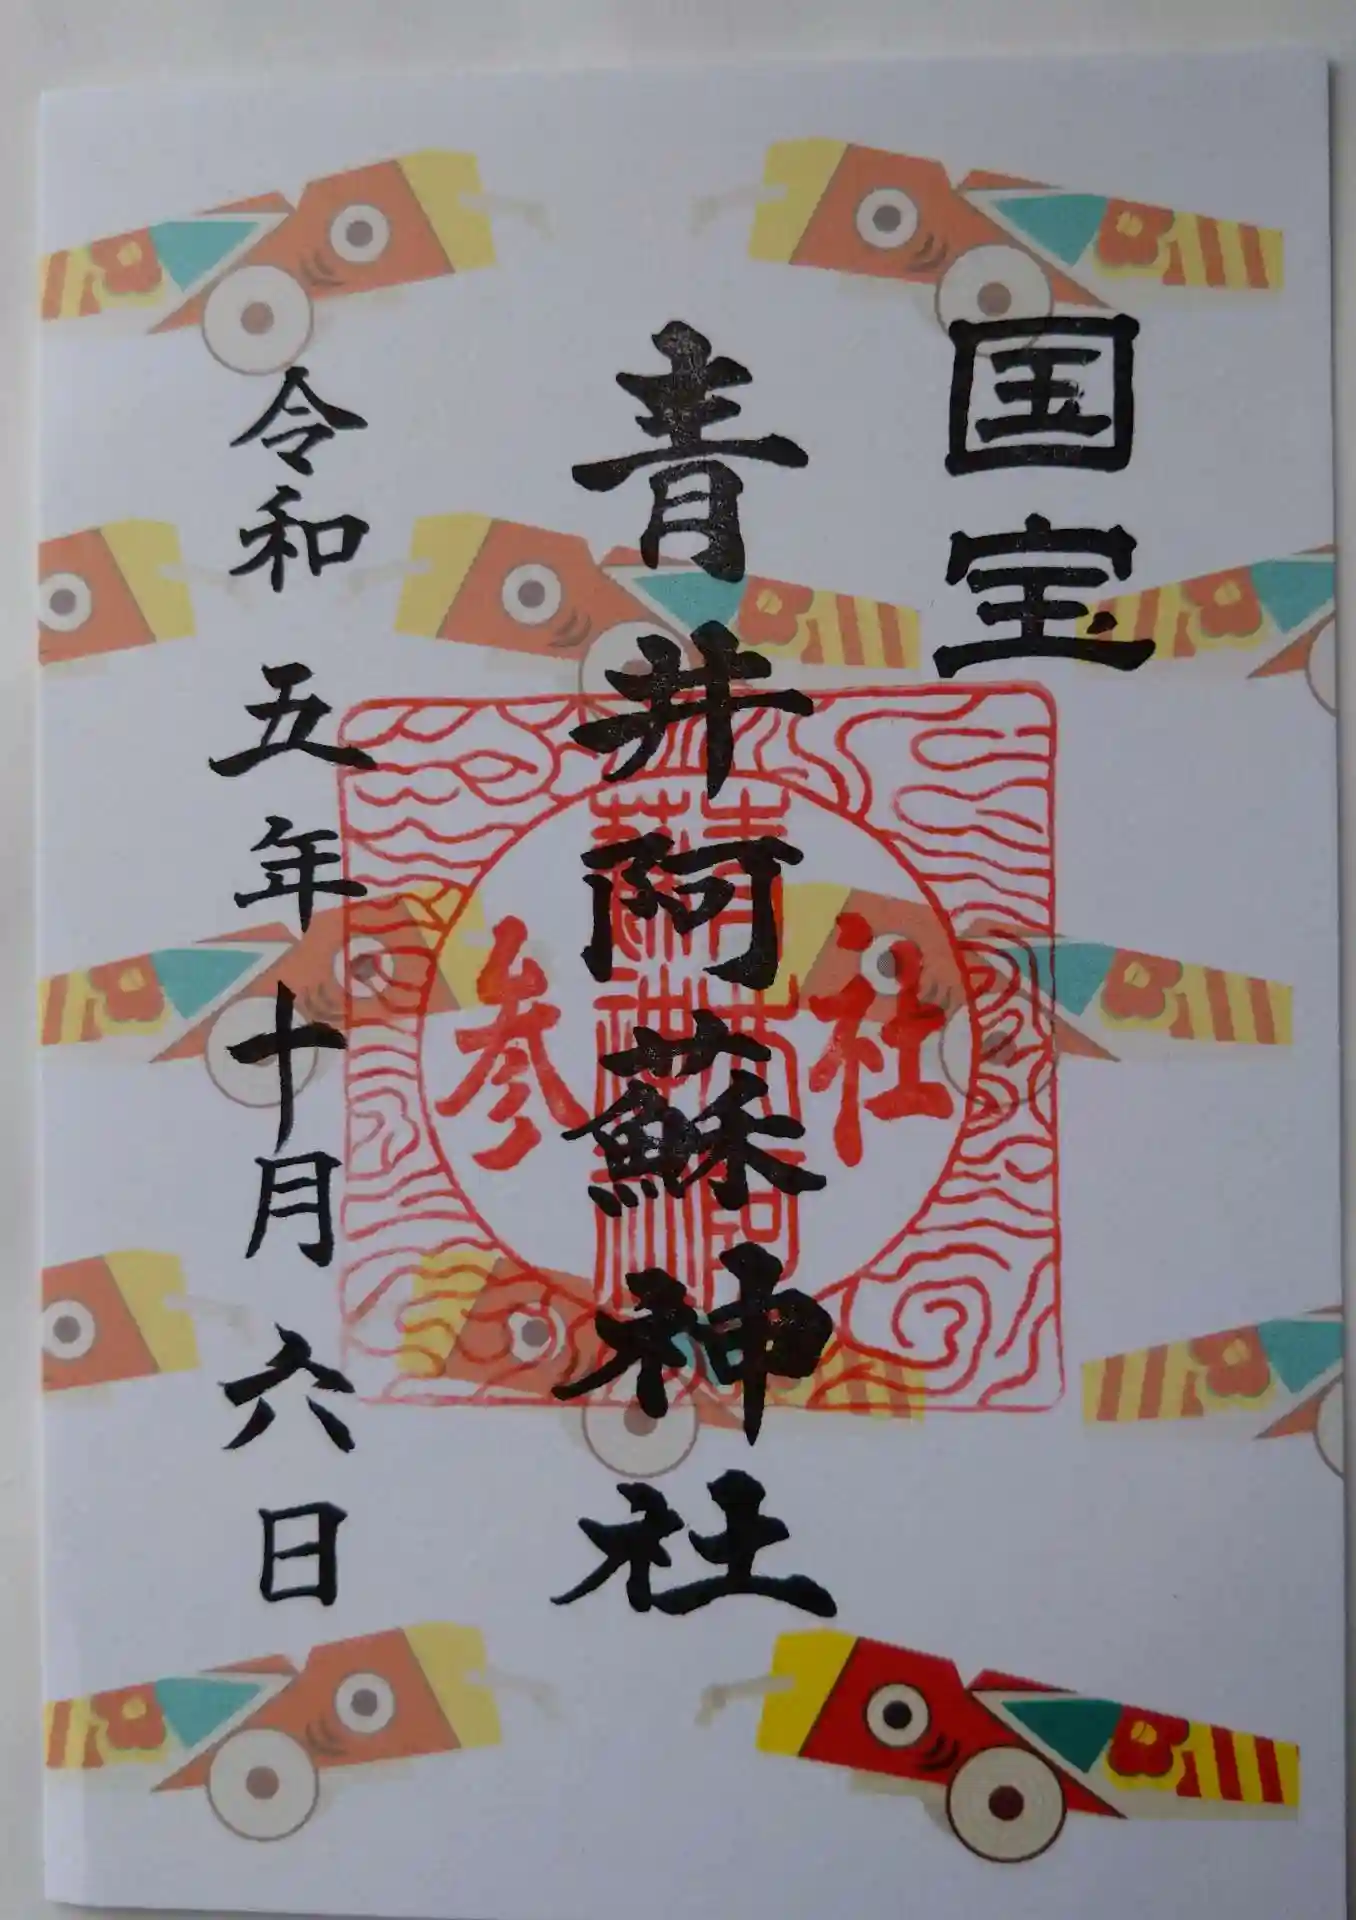 国宝
社参
青井阿蘇神社
青井阿蘇神社
令和五年十月六日